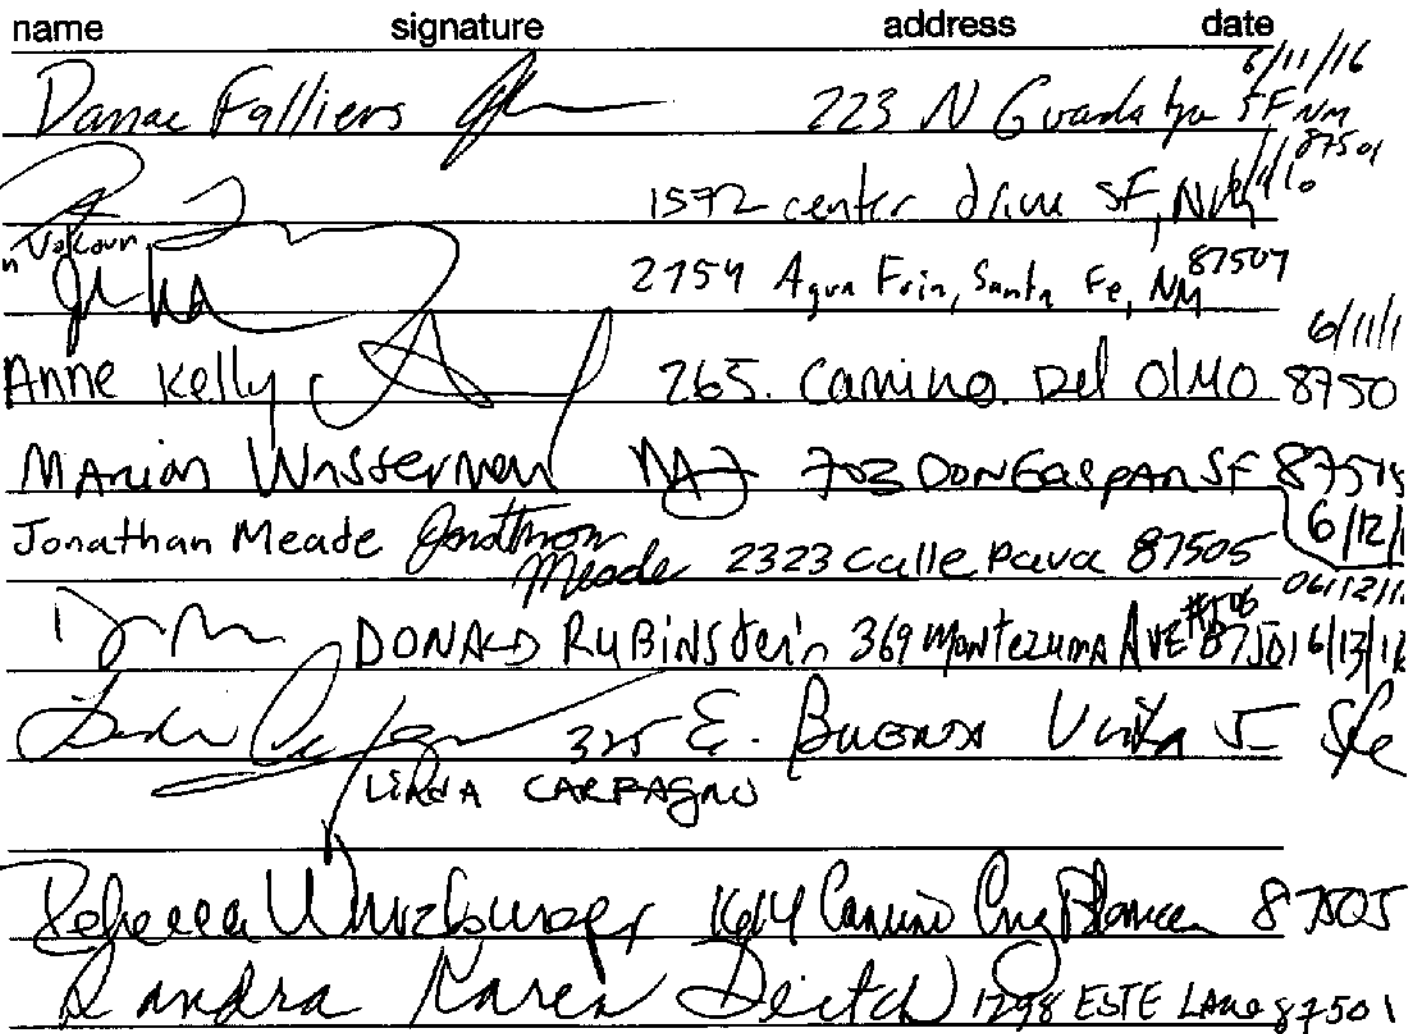 name signature address date
6/11/16
Danae Falliers 223 N Guadalupe SF NM
87501
1572 center drive SF, NM
2754 Agua Fria, Santa Fe, NM 87507
6/11/1
Anne Kelly 265. Camino. Del OlMO 8750
Marion Wasserman 703 Don Gaspar SF 875
6/12/1
Jonathan Meade Jonathan Meade 2323 Calle Pava 87505
06/12/1
DONALD RUBINStein 369 Montezuma AVE 87501 6/13/16
325 E. Buena Vista
LINDA CARFAGNO
Rebecca Wurzburger 1614 Camino Cruz Blanca 87505
Sandra Karen Deitch 1298 ESTE LANE 87501